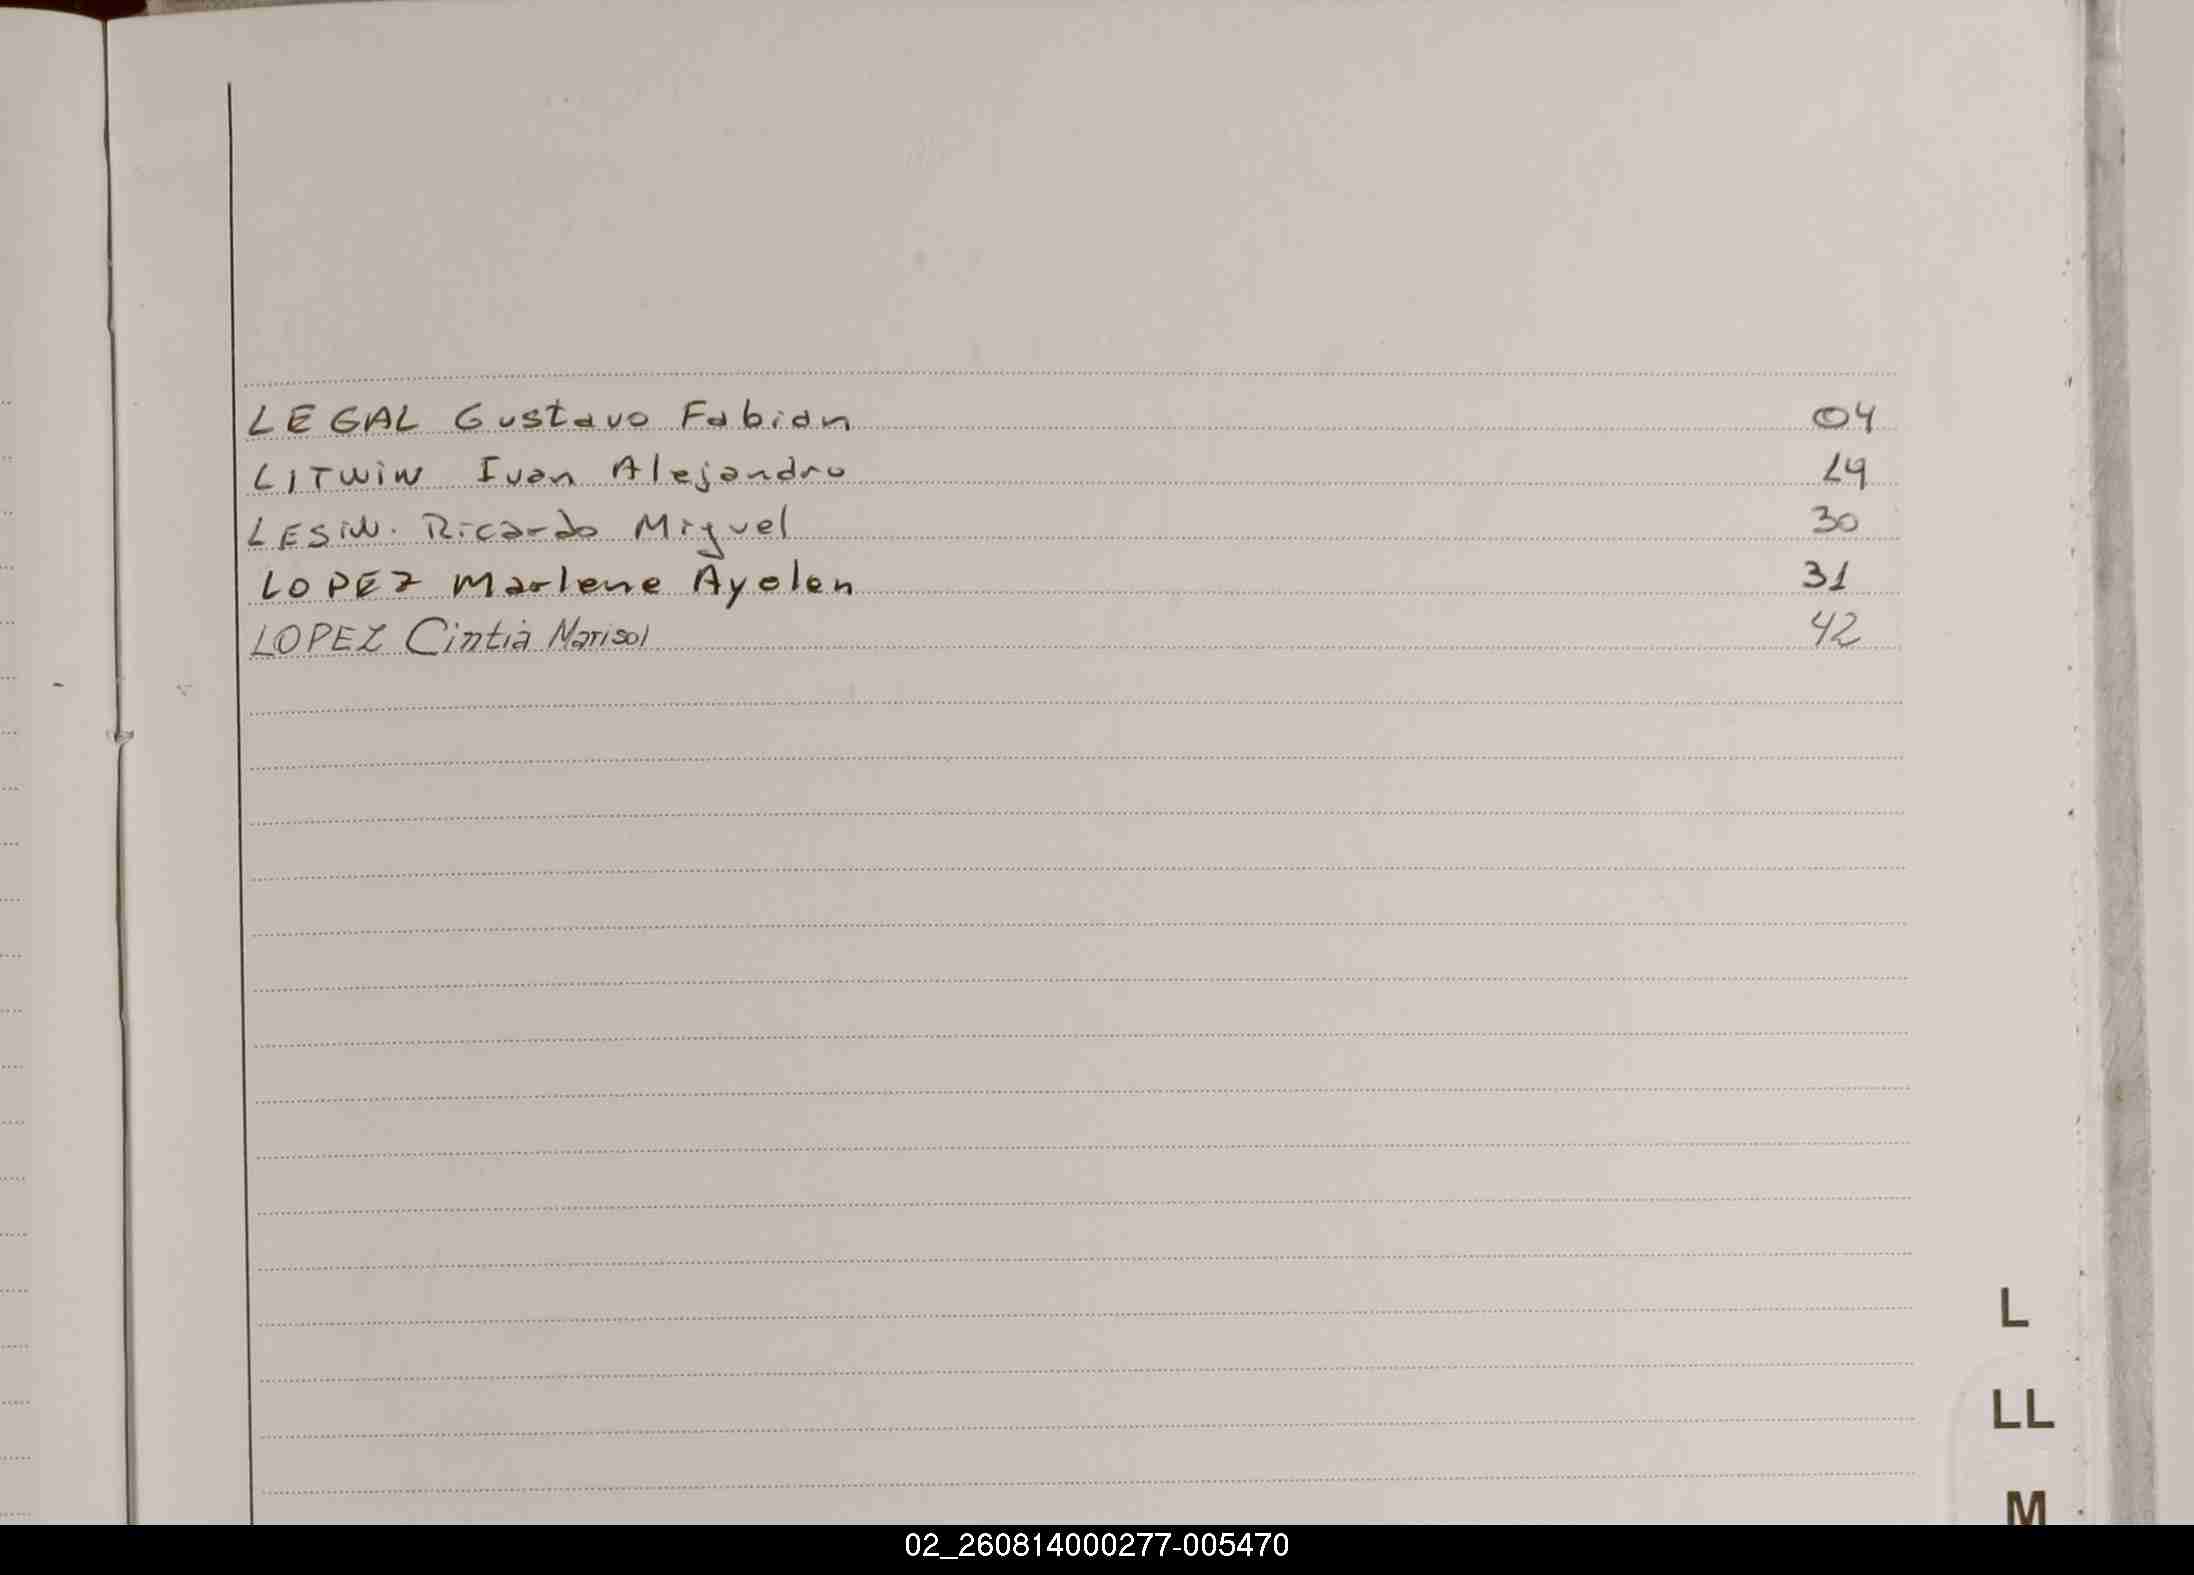 LEGAL Gustavo Fabian 04
LITWIN Ivan Alejandro 19
LESIN. Ricardo Miguel 30
LOPEZ Marlene Ayelen 31
LOPEZ Cintia Marisol 42
L
LL
M
02_260814000277-005470